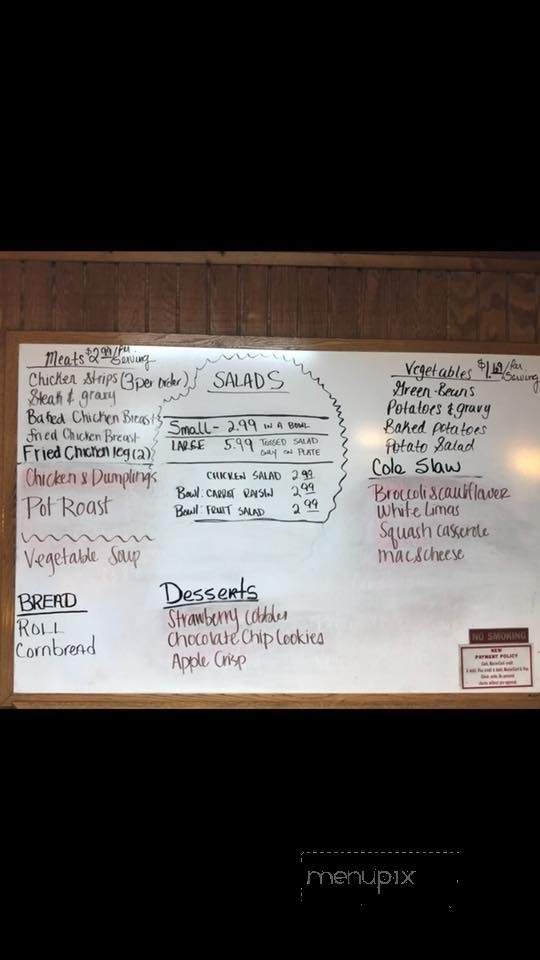 Meats $2.99/Per Serving
Chicken Strips (3 per order)
Steak & gravy
Baked Chicken Breast
Fried Chicken Breast
Fried Chicken leg (2)
Chicken & Dumplings
Pot Roast
Vegetable Soup
BREAD
ROLL
Cornbread
SALADS
Small - 2.99 IN A BOWL
LARGE 5.99 TOSSED SALAD ONLY ON PLATE
CHICKEN SALAD 2.99
Bowl: CARROT RAISIN 2.99
Bowl: FRUIT SALAD 2.99
Desserts
Strawberry Cobbler
Chocolate Chip Cookies
Apple Crisp
Vegetables /Per Serving
Green Beans
Potatoes & gravy
Baked potatoes
Potato Salad
Cole Slaw
Broccoli & cauliflower
White Limas
Squash Casserole
mac & cheese
NO SMOKING
NEW
PAYMENT POLICY
menupix